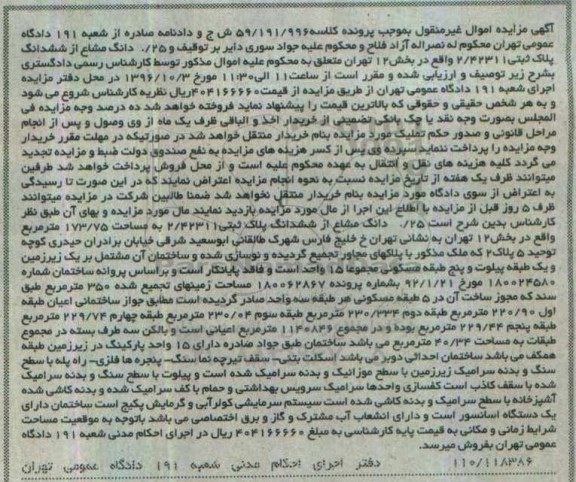 آگهی مزایده اموال غیرمنقول بموجب پرونده کلاسه ۵۹/۱۹۱/۹۹۶ ش ج و دادنامه صادره از شعبه ۱۹۱ دادگاه
عمومی تهران محکوم له نصراله آزاد فلاح و محکوم علیه جواد سوری دایر بر توقیف و ۰/۲۵ دانگ مشاع از ششدانگ
پلاک ثبتی ۲/۴۲۳۱۱ واقع در بخش ۱۲ تهران متعلق به محکوم علیه اموال مذکور توسط کارشناس رسمی دادگستری
بشرح زیر توصیف و ارزیابی شده و مقرر است از ساعت ۱۱ الی ۱۱:۳۰ مورخ ۱۳۹۶/۱۰/۳ در محل دفتر مزایده
اجرای شعبه ۱۹۱ دادگاه عمومی تهران از طریق مزایده از قیمت ۴۰۴۱۶۶۶۶۰ ریال نظریه کارشناس شروع می شود
و به هر شخص حقیقی و حقوقی که بالاترین قیمت را پیشنهاد نماید فروخته خواهد شد ده درصد وجه مزایده فی
المجلس بصورت وجه نقد یا چک بانکی تضمینی از خریدار اخذ و الباقی ظرف یک ماه از وی وصول و پس از انجام
مراحل قانونی و صدور حکم تملیک مورد مزایده بنام خریدار منتقل خواهد شد در صورتیکه در مهلت مقرر خریدار
وجه مزایده را پرداخت ننماید سپرده وی پس از کسر هزینه های مزایده به نفع صندوق دولت ضبط و مزایده تجدید
می گردد کلیه هزینه های نقل و انتقال به عهده محکوم علیه است و از محل فروش پرداخت خواهد شد طرفین
میتوانند ظرف یک هفته از تاریخ مزایده نسبت به نحوه انجام مزایده اعتراض نمایند که در این صورت تا رسیدگی
به اعتراض از سوی دادگاه مورد مزایده بنام خریدار منتقل نخواهد شد ضمنا طالبین شرکت در مزایده میتوانند
ظرف ۵ روز قبل از مزایده با اطلاع این اجرا از مال مورد مزایده بازدید نمایند مال مورد مزایده و بهای آن طبق نظر
کارشناس بدین شرح است ۰/۲۵ دانگ مشاع از ششدانگ پلاک ثبتی ۲/۴۲۳۱۱ به مساحت ۱۷۳/۷۵ مترمربع
واقع در بخش ۱۲ تهران به نشانی تهران خ خلیج فارس شهرک طالقانی ابوسعید شرقی خیابان برادران حیدری کوچه
توحید ۵ پلاک ۲ که ملک مذکور با پلاکهای مجاور تجمیع گردیده و نوسازی شده و ساختمان آن مشتمل بر یک زیرزمین
و یک طبقه پیلوت و پنج طبقه مسکونی مجموعا ۱۵ واحد است و فاقد پایانکار است و براساس پروانه ساختمان شماره
۱۸۰۰۲۴۵۸۰ مورخ ۹۲/۱/۲۱ بشماره پرونده ۱۸۰۰۶۲۸۶۷ مساحت زمینهای تجمیع شده ۳۵۰ مترمربع طبق
سند که مجوز ساخت آن در ۵ طبقه مسکونی هر طبقه سه واحد صادر گردیده است مطابق جواز ساختمانی اعیان طبقه
اول ۲۲۰/۹۰ مترمربع طبقه دوم ۲۳۰/۳۳۴ مترمربع طبقه سوم ۲۳۰/۰۴ مترمربع طبقه چهارم ۲۲۹/۷۴ مترمربع
طبقه پنجم ۲۲۹/۴۴ مترمربع بوده و در مجموع ۱۱۴۰۸۴۶ مترمربع اعیانی است و بالکن سه طرف بسته در مجموع
طبقات به مساحت ۴۰/۳۴ مترمربع می باشد ساختمان طبق جواد صادره دارای ۱۵ واحد پارکینگ در زیرزمین طبقه
همکف می باشد ساختمان احداثی دوبر می باشد اسکلت بتنی- سقف تیرچه نما سنگ- پنجره ها فلزی- راه پله با سطح
سنگ و بدنه سرامیک زیرزمین با سطح موزائیک و بدنه سرامیک شده است و پیلوت با سطح سنگ و بدنه سرامیک
شده با سقف کاذب است کفسازی واحدها سرامیک سرویس بهداشتی و حمام با کف سرامیک شده و بدنه کاشی شده
آشپزخانه با سطح سرامیک و بدنه کاشی شده است سیستم سرمایشی کولرآبی و گرمایش پکیج است ساختمان دارای
یک دستگاه آسانسور است و دارای انشعاب آب مشترک و گاز و برق اختصاصی می باشد باتوجه به موقعیت مساحت
شرایط زمانی و مکانی به قیمت پایه کارشناسی به مبلغ ۴۰۴۱۶۶۶۶۰ ریال در اجرای احکام مدنی شعبه ۱۹۱ دادگاه
عمومی تهران بفروش میرسد.
۱۱۰/۱۱۸۳۸۶ دفتر اجرای احکام مدنی شعبه ۱۹۱ دادگاه عمومی تهران